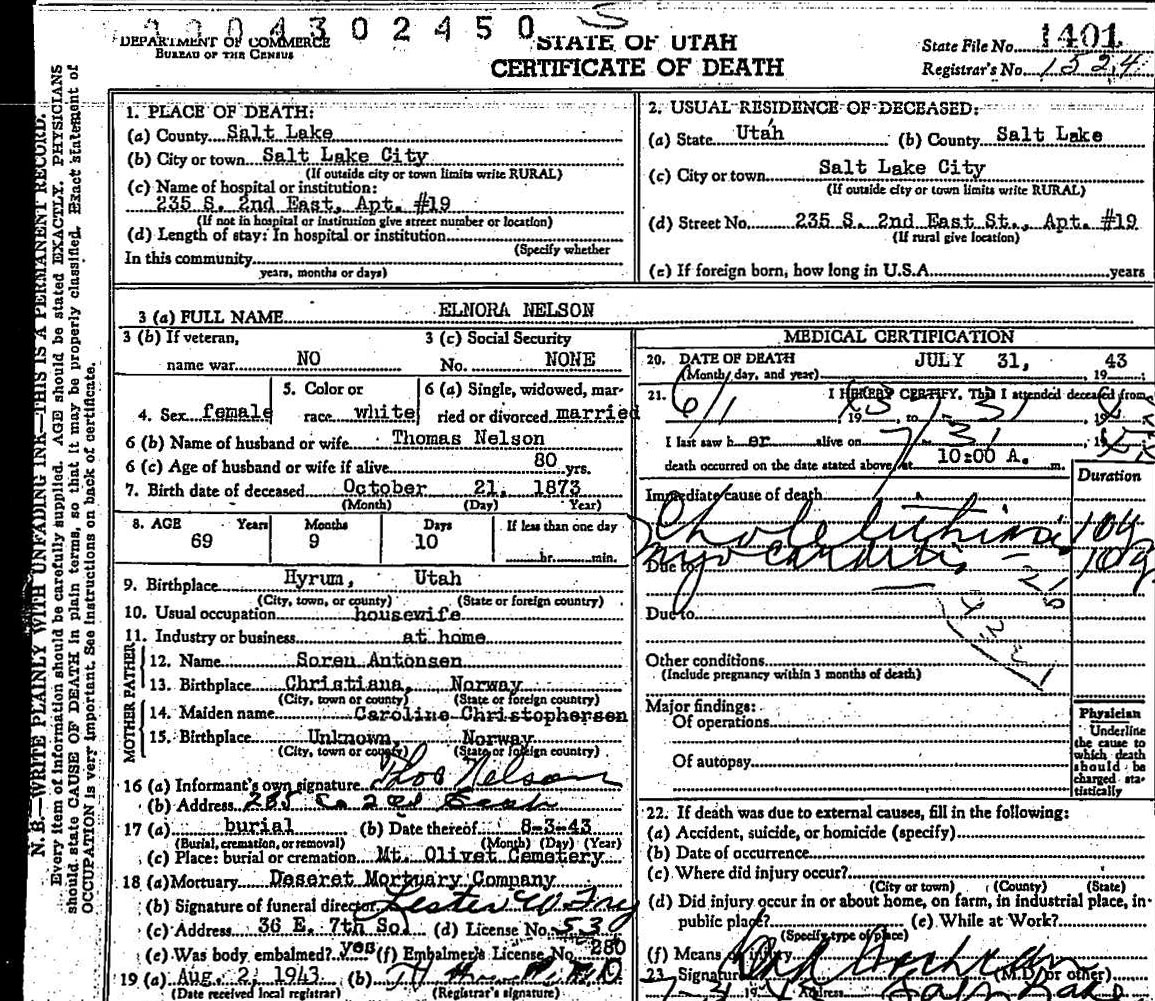 0004302450
DEPARTMENT OF COMMERCE
BUREAU OF THE CENSUS
STATE OF UTAH
CERTIFICATE OF DEATH
State File No. 1401
Registrar's No. 1524
N. B.—WRITE PLAINLY WITH UNFADING INK—THIS IS A PERMANENT RECORD.
Every item of information should be carefully supplied. AGE should be stated EXACTLY. PHYSICIANS
should state CAUSE OF DEATH in plain terms, so that it may be properly classified. Exact statement of
OCCUPATION is very important. See instructions on back of certificate.
1. PLACE OF DEATH:
(a) County Salt Lake
(b) City or town Salt Lake City
(If outside city or town limits write RURAL)
(c) Name of hospital or institution:
235 S. 2nd East, Apt. #19
(If not in hospital or institution give street number or location)
(d) Length of stay: In hospital or institution
(Specify whether
In this community
years, months or days)
2. USUAL RESIDENCE OF DECEASED:
(a) State Utah (b) County Salt Lake
(c) City or town Salt Lake City
(If outside city or town limits write RURAL)
(d) Street No. 235 S. 2nd East St., Apt. #19
(If rural give location)
(e) If foreign born, how long in U.S.A. years
3 (a) FULL NAME ELNORA NELSON
3 (b) If veteran, 3 (c) Social Security
name war NO No. NONE
5. Color or 6 (a) Single, widowed, mar-
4. Sex female race white ried or divorced married
6 (b) Name of husband or wife Thomas Nelson
6 (c) Age of husband or wife if alive 80 yrs.
7. Birth date of deceased October 21, 1873
(Month) (Day) Year)
8. AGE Years Months Days If less than one day
69 9 10
hr. min.
9. Birthplace Hyrum, Utah
(City, town, or county) (State or foreign country)
10. Usual occupation housewife
11. Industry or business at home
FATHER
12. Name Soren Antonsen
13. Birthplace Christiana, Norway
(City, town or county) (State or foreign country)
MOTHER
14. Maiden name Caroline Christophersen
15. Birthplace Unknown Norway
(City, town or county) (State or foreign country)
16 (a) Informant's own signature Thos Nelson
(b) Address 235 So 2nd East
17 (a) burial (b) Date thereof 8-3-43
(Burial, cremation, or removal) (Month) (Day) (Year)
(c) Place: burial or cremation Mt. Olivet Cemetery
18 (a) Mortuary Deseret Mortuary Company
(b) Signature of funeral director Lester W Fry
(c) Address 36 E. 7th So. (d) License No. 530
(e) Was body embalmed? yes (f) Embalmer's License No. 280
19 (a) Aug. 2, 1943 (b)
(Date received local registrar) (Registrar's signature)
MEDICAL CERTIFICATION
20. DATE OF DEATH JULY 31, 43
(Month, day, and year) 19
21. I HEREBY CERTIFY, That I attended deceased from
6/1 19 43 to 7/31 19
I last saw her alive on 7-31 19
death occurred on the date stated above at 10:00 A. m.
Duration
Immediate cause of death
Cholelithiasis 10y
Due to Myocarditis 10y
Due to
Other conditions
(Include pregnancy within 3 months of death)
Major findings:
Of operations
Of autopsy
Physician
Underline
the cause to
which death
should be
charged sta-
tistically
22. If death was due to external causes, fill in the following:
(a) Accident, suicide, or homicide (specify)
(b) Date of occurrence
(c) Where did injury occur?
(City or town) (County) (State)
(d) Did injury occur in or about home, on farm, in industrial place, in
public place? (e) While at Work?
(Specify type of place)
(f) Means of injury
23. Signature (M.D. or other)
19 Address Salt Lake